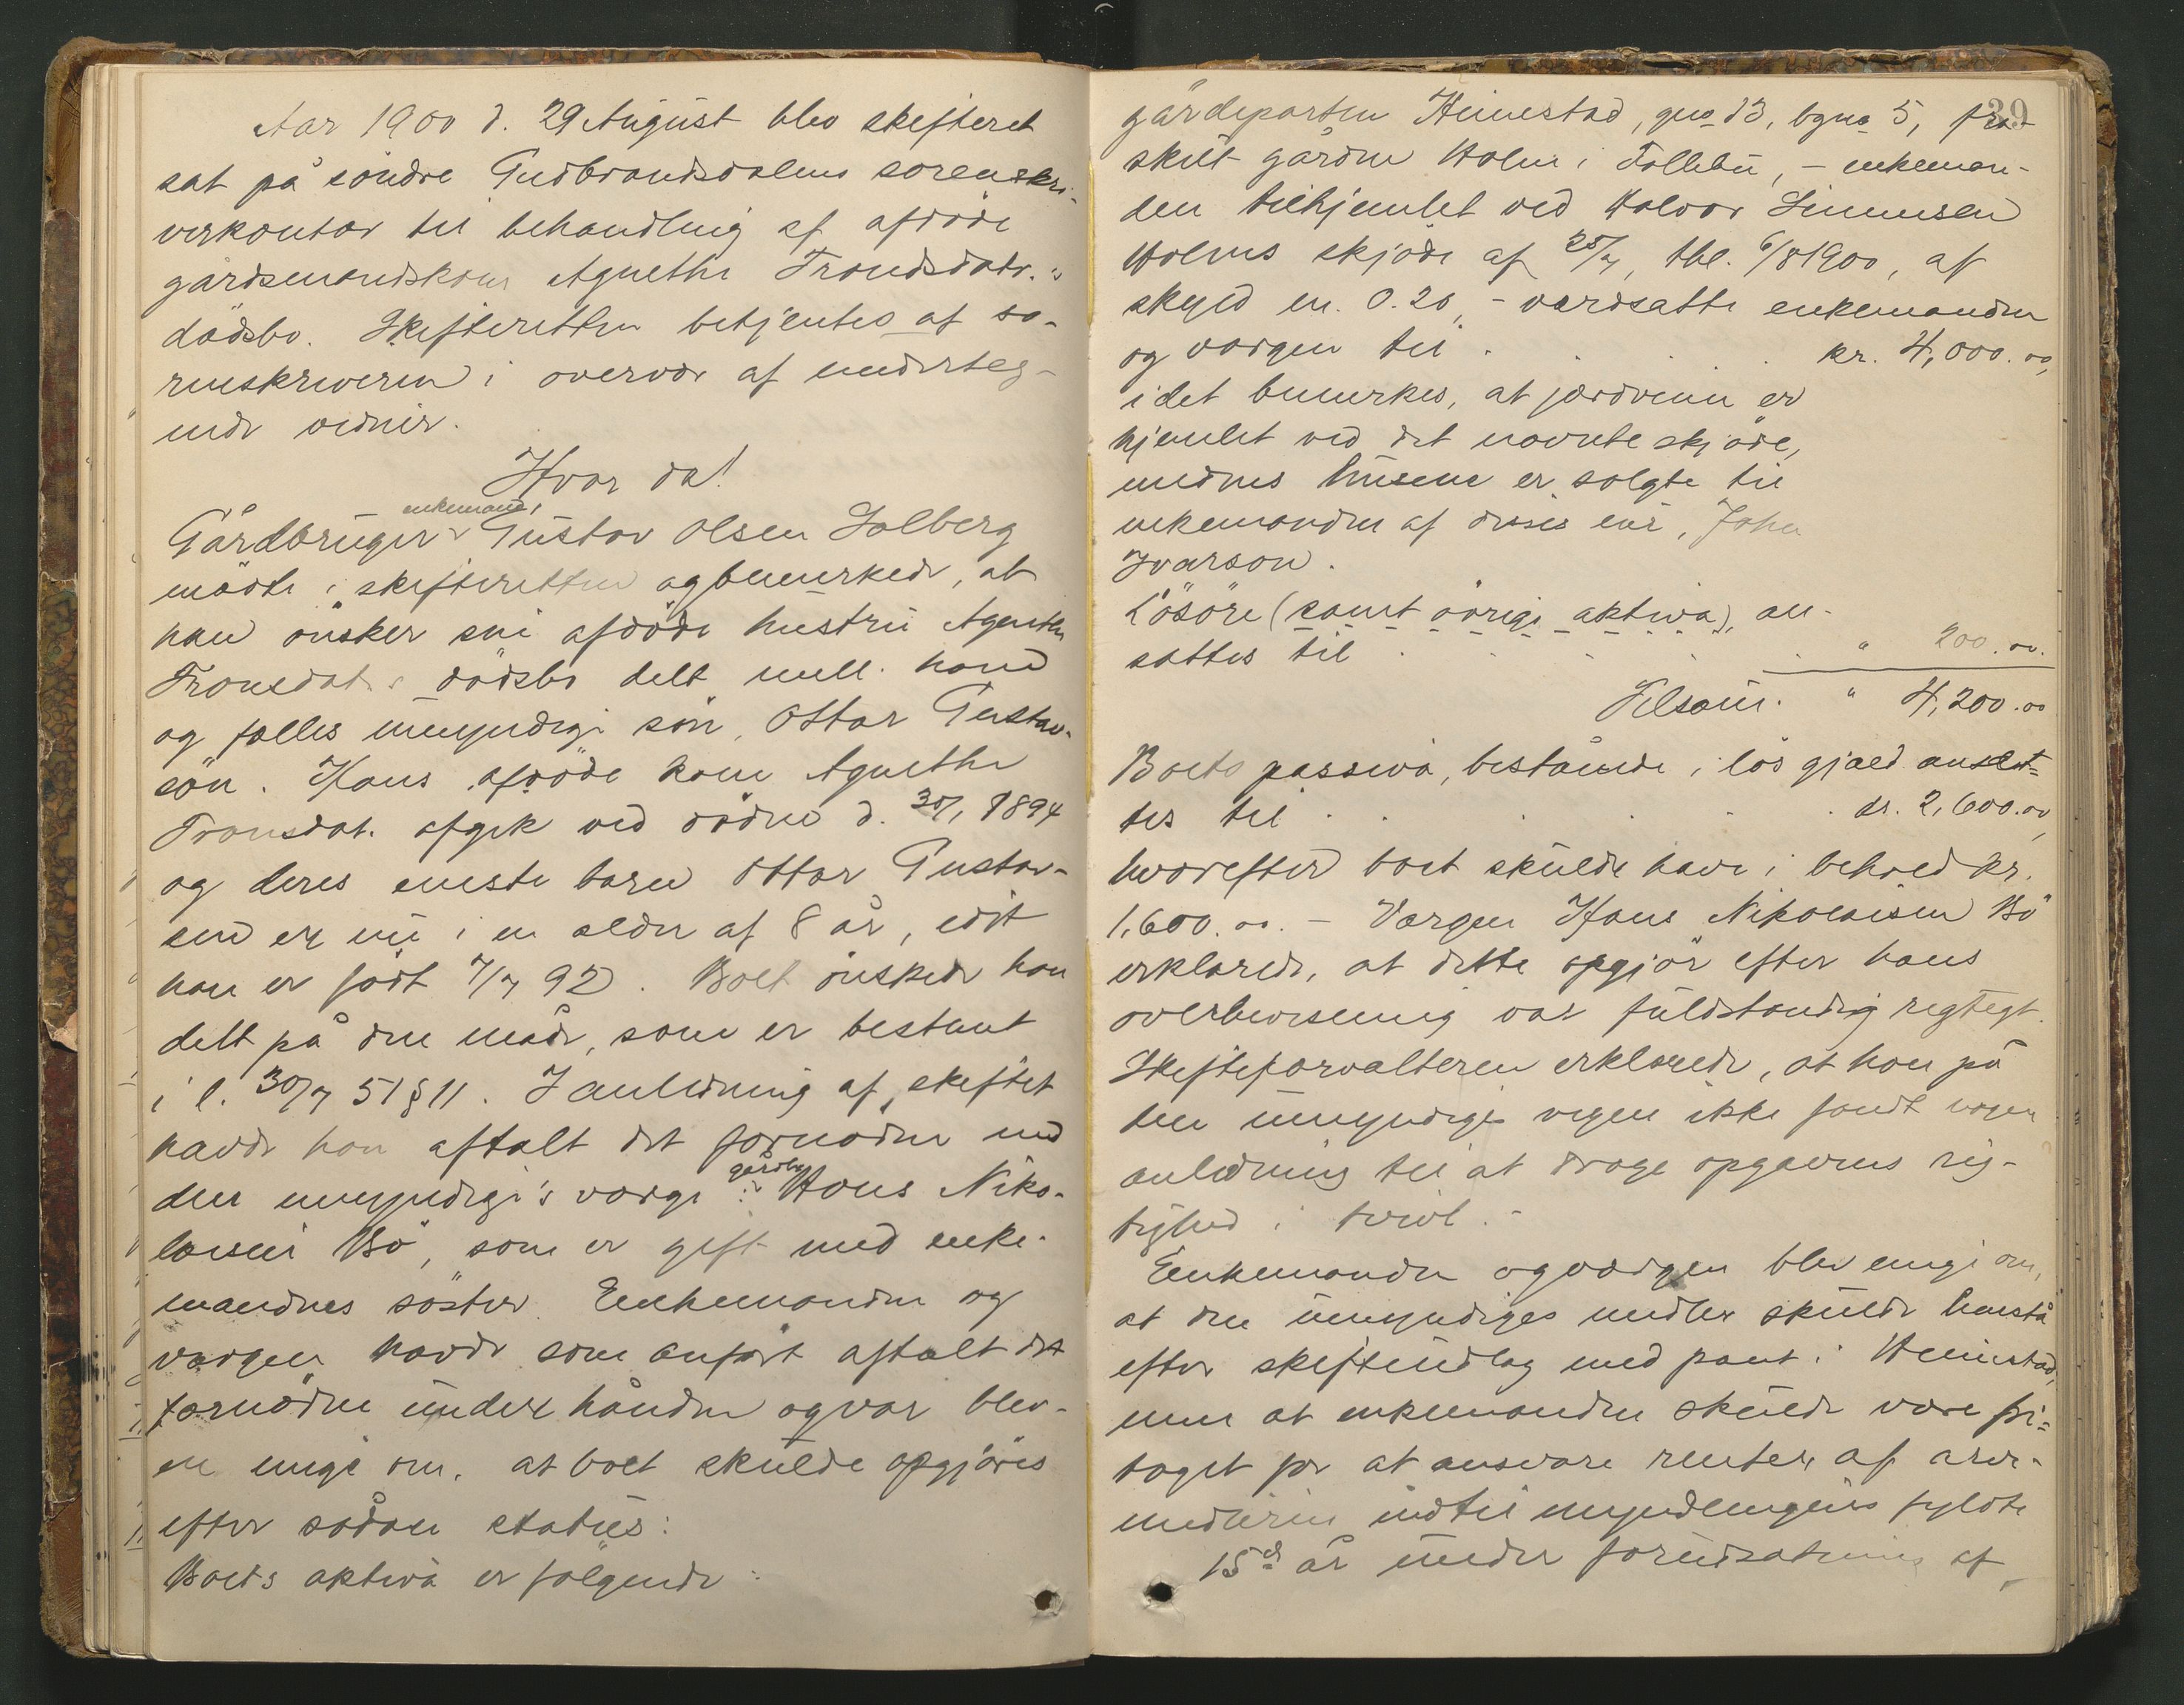 Aar 1900 d. 29 August blev skifteret
sat på söndre Gudbrandsdalens sorenskri-
verkontor til behandling af afdöde
gårdmandskone Agnethe Trondsdatr.'s
dödsbo. Skifteretten betjentes af so-
renskriveren i overvær af underteg-
nede vidner.
Hvor da!
enkemand,
Gårdbruger Gustav Olsen Solberg
mödte i skifteretten og bemerkede, at
han önsker sin afdöde hustru Agnethe
Tronsdat.s dödsbo delt mell. ham
og fælles umyndige sön, Ottar Gustav-
sön. Hans afdöde kone Agnethe
Tronsdat. afgik ved döden d. 30/1 1894
og deres eneste barn Ottar Gustav-
sen er nu i en alder af 8 år, idet
han er födt 7/7 92. Boet önskede han
delt på den måde, som er bestemt
i l. 30/7 51 § 11. I anledning af skiftet
havde han aftalt det fornödne med
gårdbr.
den umyndige's verge: Hans Niko-
laisen Bö, som er gift med enke-
mandens söster. Enkemanden og
vergen havde som anfört aftalt det
fornödne under hånden og var blev-
en enige om, at boet skulde opgjöres
efter sådan status:
Boets aktiva er fölgende:
39
gårdeparten Heimestad, gno 13, bgno 5, fra-
skilt gården Holm i Follebu, - enkeman-
den tilhjemlet ved Halvor Simensen
Holms skjöde af 25/7, tbl. 6/8 1900, af
skyld m. 0.20, - verdsatte enkemanden
og vergen til . . . kr. 4,000.00,
idet bemerkes, at jordveien er
hjemlet ved det nævnte skjöde,
medens husene er solgte til
enkemanden af disses eier, John
Ivarson.
Lösöre (samt övrige aktiva), an-
sattes til . . . . " 200.00.
Tilsam. " 4,200.00
Boets passiva, bestående i lös gjæld ansat-
tes til . . . . kr. 2,600.00,
hvorefter boet skulde have i behold kr.
1,600.00. - Vergen Hans Nikolaisen Bö
erklærede, at dette opgjör efter hans
overbevisning var fuldstændig rigtigt.
Skifteforvalteren erklærede, at han på
den umyndiges vegne ikke fandt nogen
anledning til at drage opgavens rig-
tighed i tvivl. -
Enkemanden og vergen blev enige om,
at den umyndiges midler skulde henstå
efter skifteudlæg med pant i Heimestad,
men at enkemanden skulde være fri-
taget for at ansvare renter af arve-
midlerne indtil myndlingens fyldte
15de år under forudsætning af